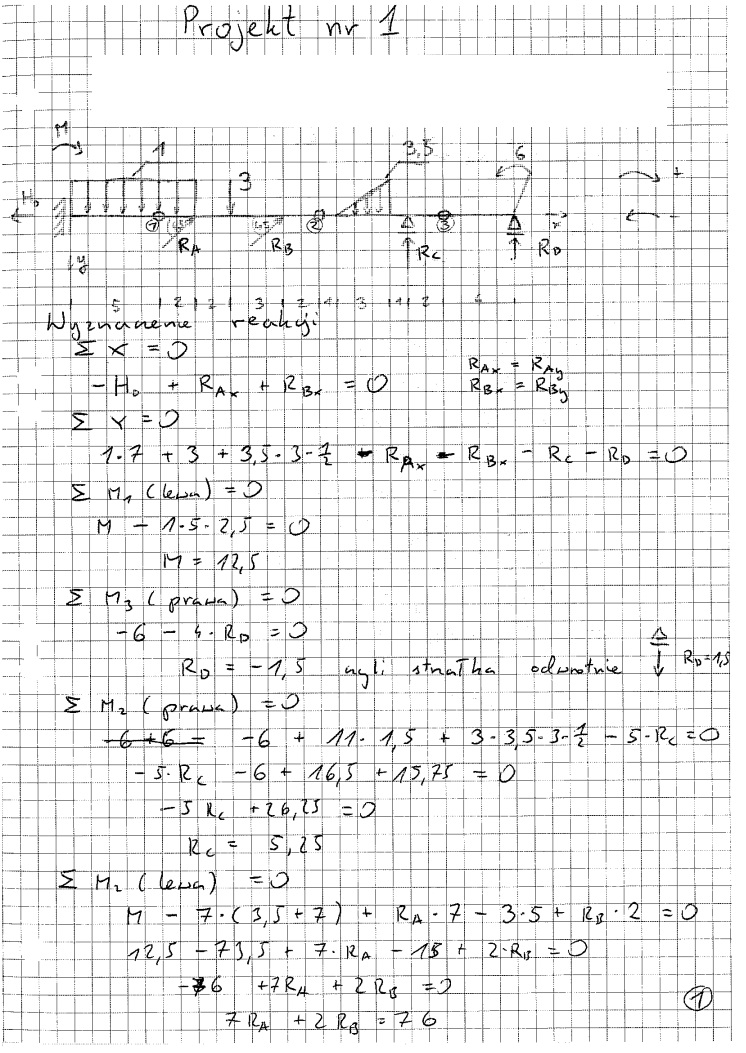 Projekt nr 1
M 1 3 3,5 6 +
H₀ ① R_A R_B ② R_C ③ x R_D -
y
5 2 2 3 2 1 3 1 2 4
Wyznaczenie reakcji
Σ X = 0
-H₀ + R_Ax + R_Bx = 0 R_Ax = R_Ay
R_Bx = R_By
Σ Y = 0
1·7 + 3 + 3,5·3·½ - R_Ax - R_Bx - R_C - R_D = 0
Σ M₁ (lewa) = 0
M - 1·5·2,5 = 0
M = 12,5
Σ M₃ (prawa) = 0
-6 - 4·R_D = 0
R_D = -1,5 czyli strzałka odwrotnie R_D=1,5
Σ M₂ (prawa) = 0
-6 +6 = -6 + 11·1,5 + 3·3,5·3·½ - 5·R_C = 0
-5·R_C -6 + 16,5 + 15,75 = 0
-5 R_C + 26,25 = 0
R_C = 5,25
Σ M₂ (lewa) = 0
M - 7·(3,5+7) + R_A·7 - 3·5 + R_B·2 = 0
12,5 - 73,5 + 7·R_A - 15 + 2·R_B = 0
-76 + 7R_A + 2R_B = 0
7R_A + 2R_B = 76
①